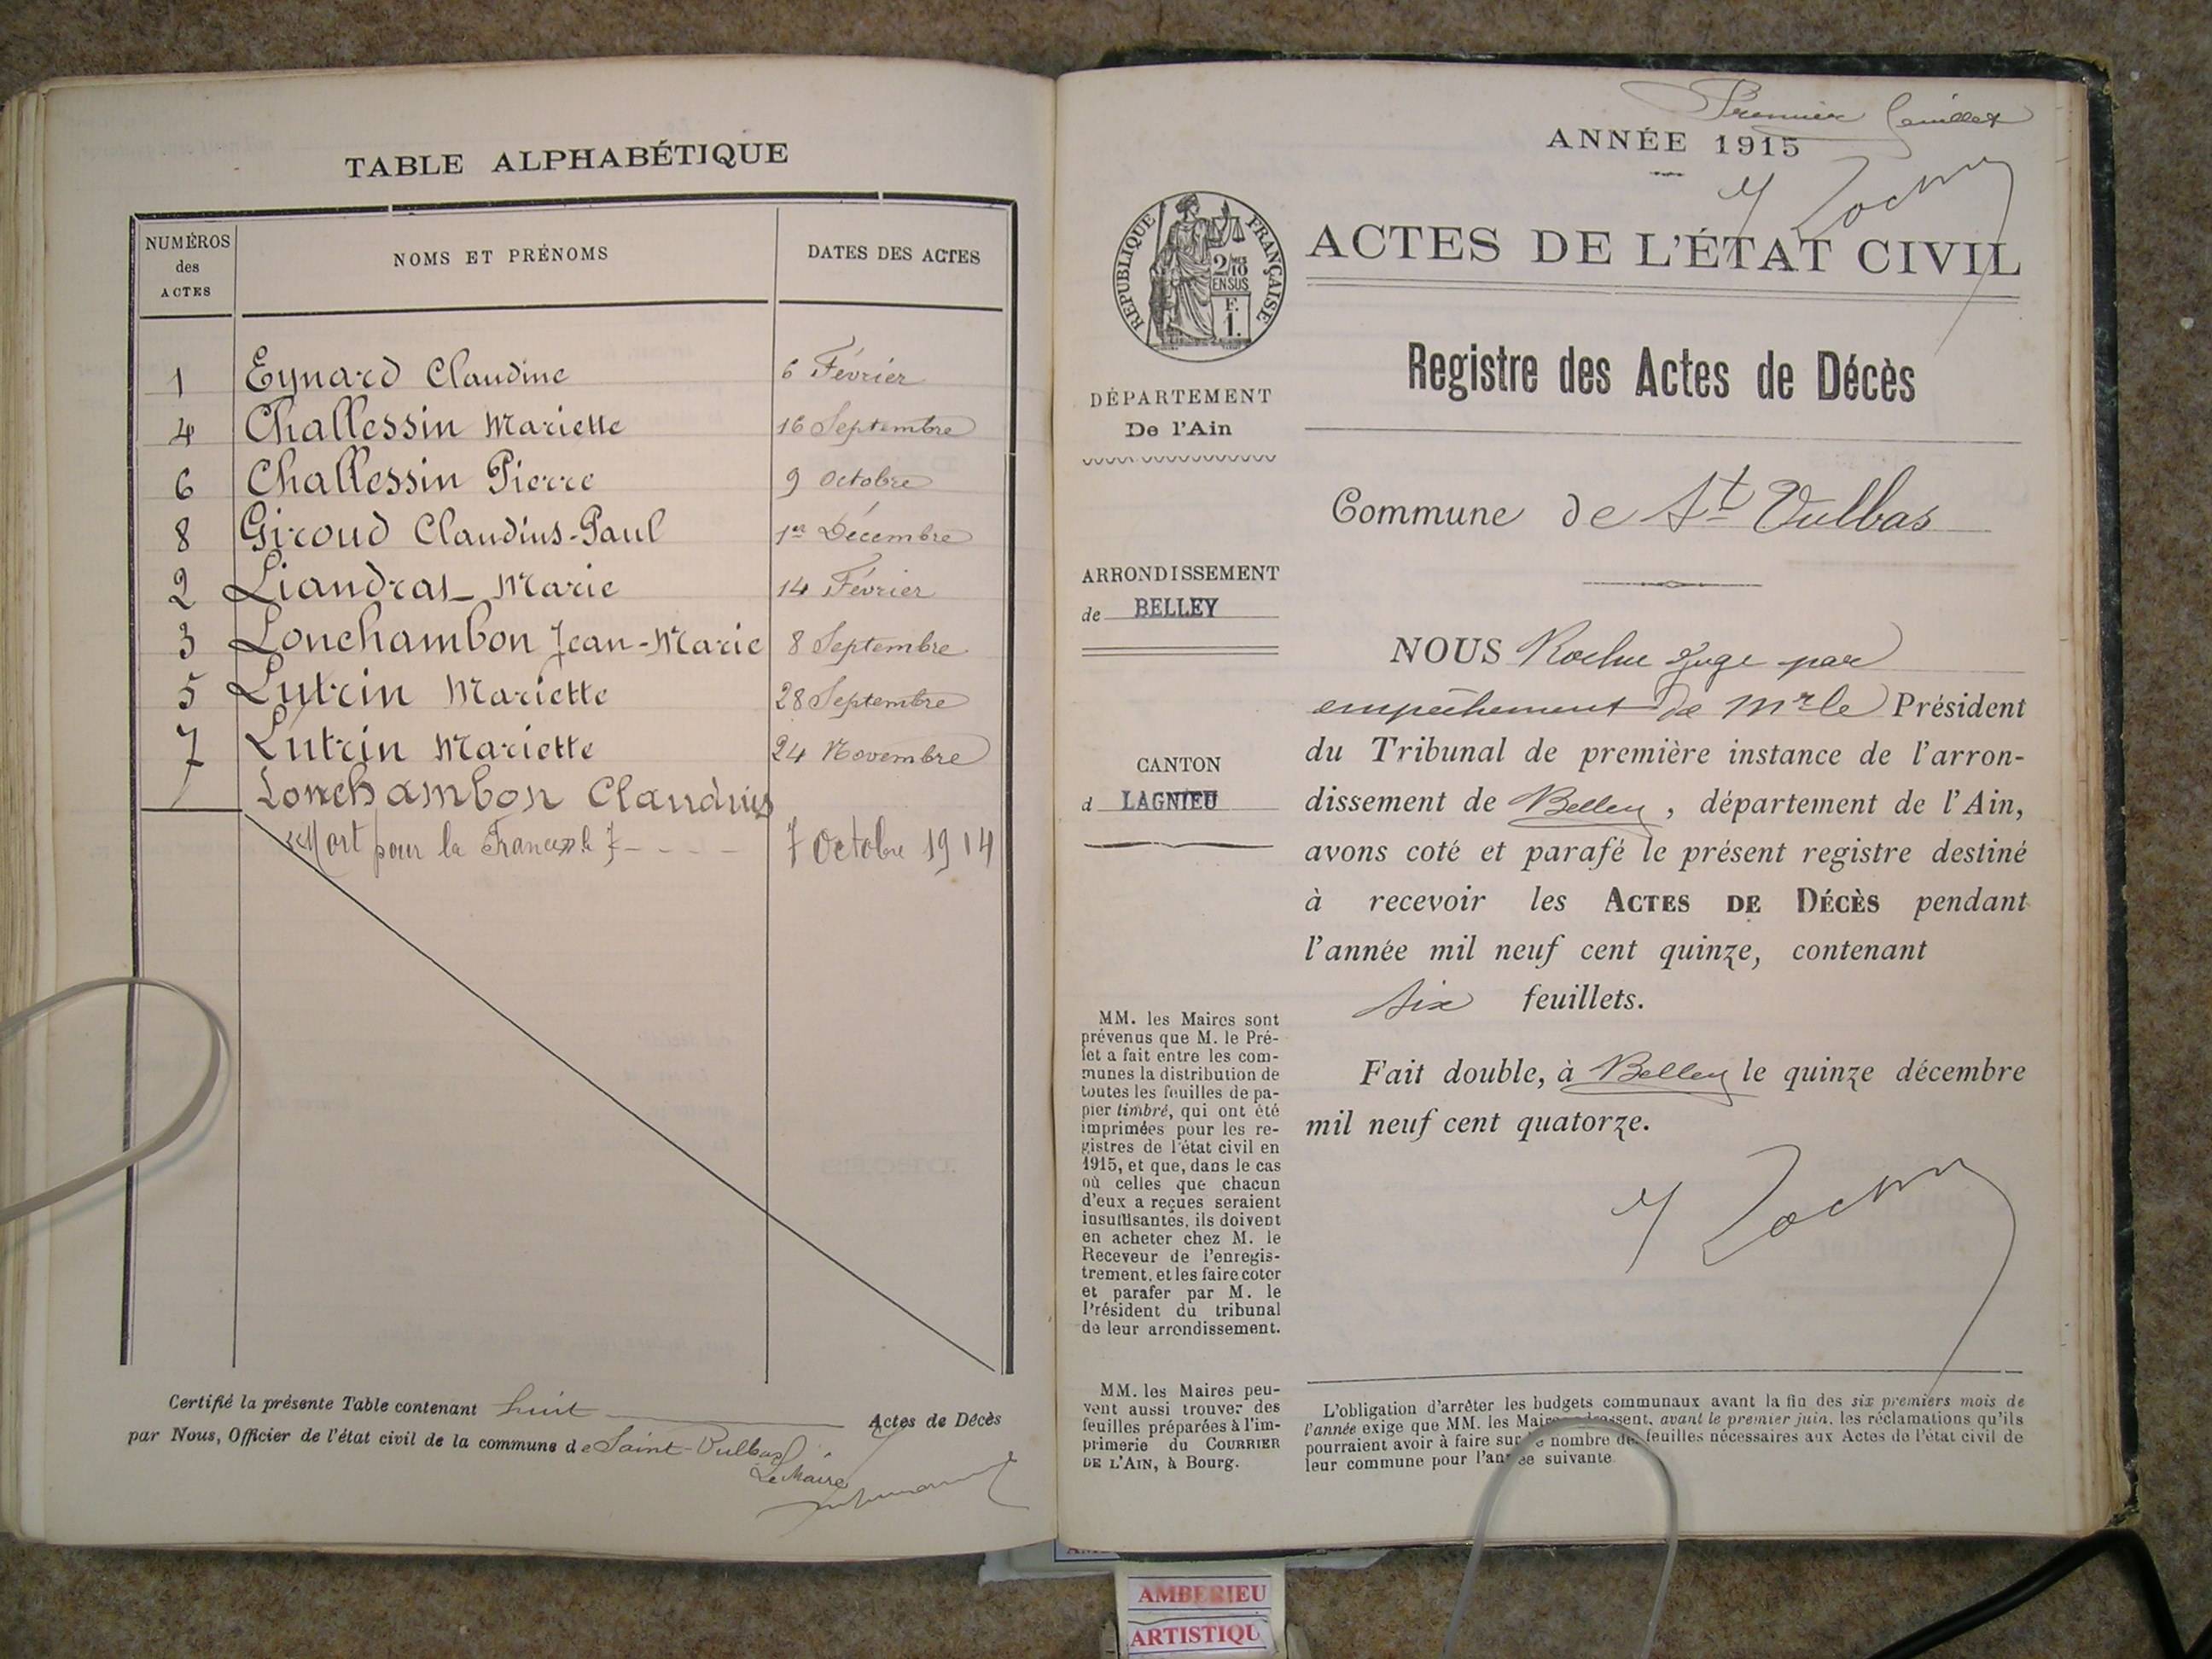 TABLE ALPHABÉTIQUE
NUMÉROS des ACTES NOMS ET PRÉNOMS DATES DES ACTES
1 Eynard Claudine 6 Février
4 Challessin Mariette 16 Septembre
6 Challessin Pierre 9 Octobre
8 Giroud Claudius-Paul 1er Décembre
2 Liandras Marie 14 Février
3 Lonchambon Jean-Marie 8 Septembre
5 Lutrin Mariette 28 Septembre
7 Lutrin Mariette 24 Novembre
Lonchambon Claudius
«Mort pour la France» le 7 Octobre 1914
Certifié la présente Table contenant huit Actes de Décès
par Nous, Officier de l'état civil de la commune de Saint-Vulbas
Le Maire
Premier feuillet
ANNÉE 1915
RÉPUBLIQUE FRANÇAISE
2/10
EN SUS
F.
1.
ACTES DE L'ÉTAT CIVIL
Registre des Actes de Décès
DÉPARTEMENT
De l'Ain
Commune de St Vulbas
ARRONDISSEMENT
de BELLEY
CANTON
d LAGNIEU
NOUS Juge par
empêchement de Mr le Président
du Tribunal de première instance de l'arron-
dissement de Belley, département de l'Ain,
avons coté et parafé le présent registre destiné
à recevoir les ACTES DE DÉCÈS pendant
l'année mil neuf cent quinze, contenant
six feuillets.
Fait double, à Belley le quinze décembre
mil neuf cent quatorze.
MM. les Maires sont
prévenus que M. le Pré-
fet a fait entre les com-
munes la distribution de
toutes les feuilles de pa-
pier timbré, qui ont été
imprimées pour les re-
gistres de l'état civil en
1915, et que, dans le cas
où celles que chacun
d'eux a reçues seraient
insuffisantes, ils doivent
en acheter chez M. le
Receveur de l'enregis-
trement, et les faire coter
et parafer par M. le
Président du tribunal
de leur arrondissement.
MM. les Maires peu-
vent aussi trouver des
feuilles préparées à l'im-
primerie du COURRIER
DE L'AIN, à Bourg.
L'obligation d'arrêter les budgets communaux avant la fin des six premiers mois de
l'année exige que MM. les Maires adressent, avant le premier juin, les réclamations qu'ils
pourraient avoir à faire sur le nombre des feuilles nécessaires aux Actes de l'état civil de
leur commune pour l'année suivante.
AMBERIEU
ARTISTIQU